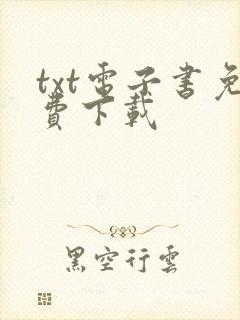 txt電子書免
費下載
黑空行雲